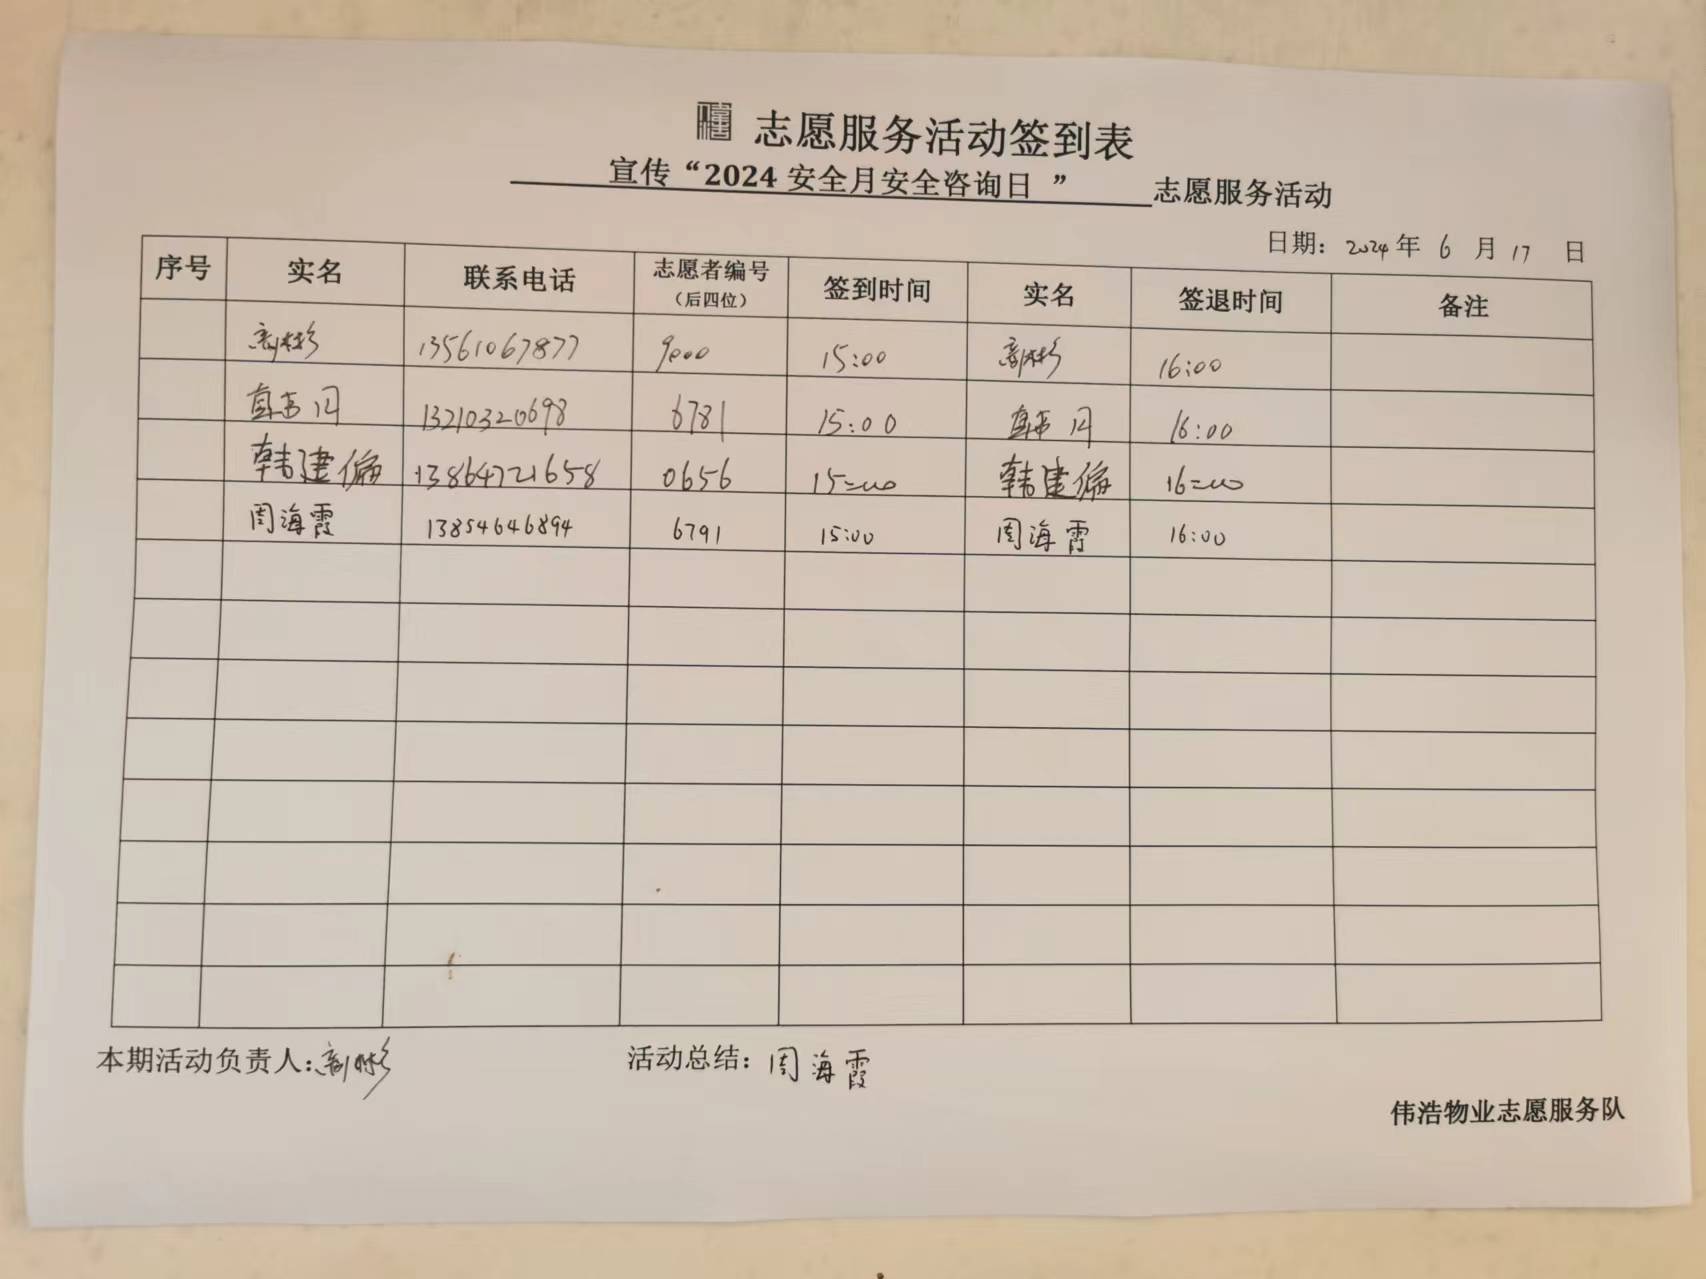 志愿服务活动签到表
宣传“2024安全月安全咨询日 ” 志愿服务活动
日期：2024年 6 月 17 日
序号 实名 联系电话 志愿者编号（后四位） 签到时间 实名 签退时间 备注
13561067877 9000 15:00 16:00
13210320698 6781 15:00 16:00
韩建偏 13864721658 0656 15:00 韩建偏 16:00
周海霞 13854646894 6791 15:00 周海霞 16:00
本期活动负责人： 活动总结：周海霞
伟浩物业志愿服务队